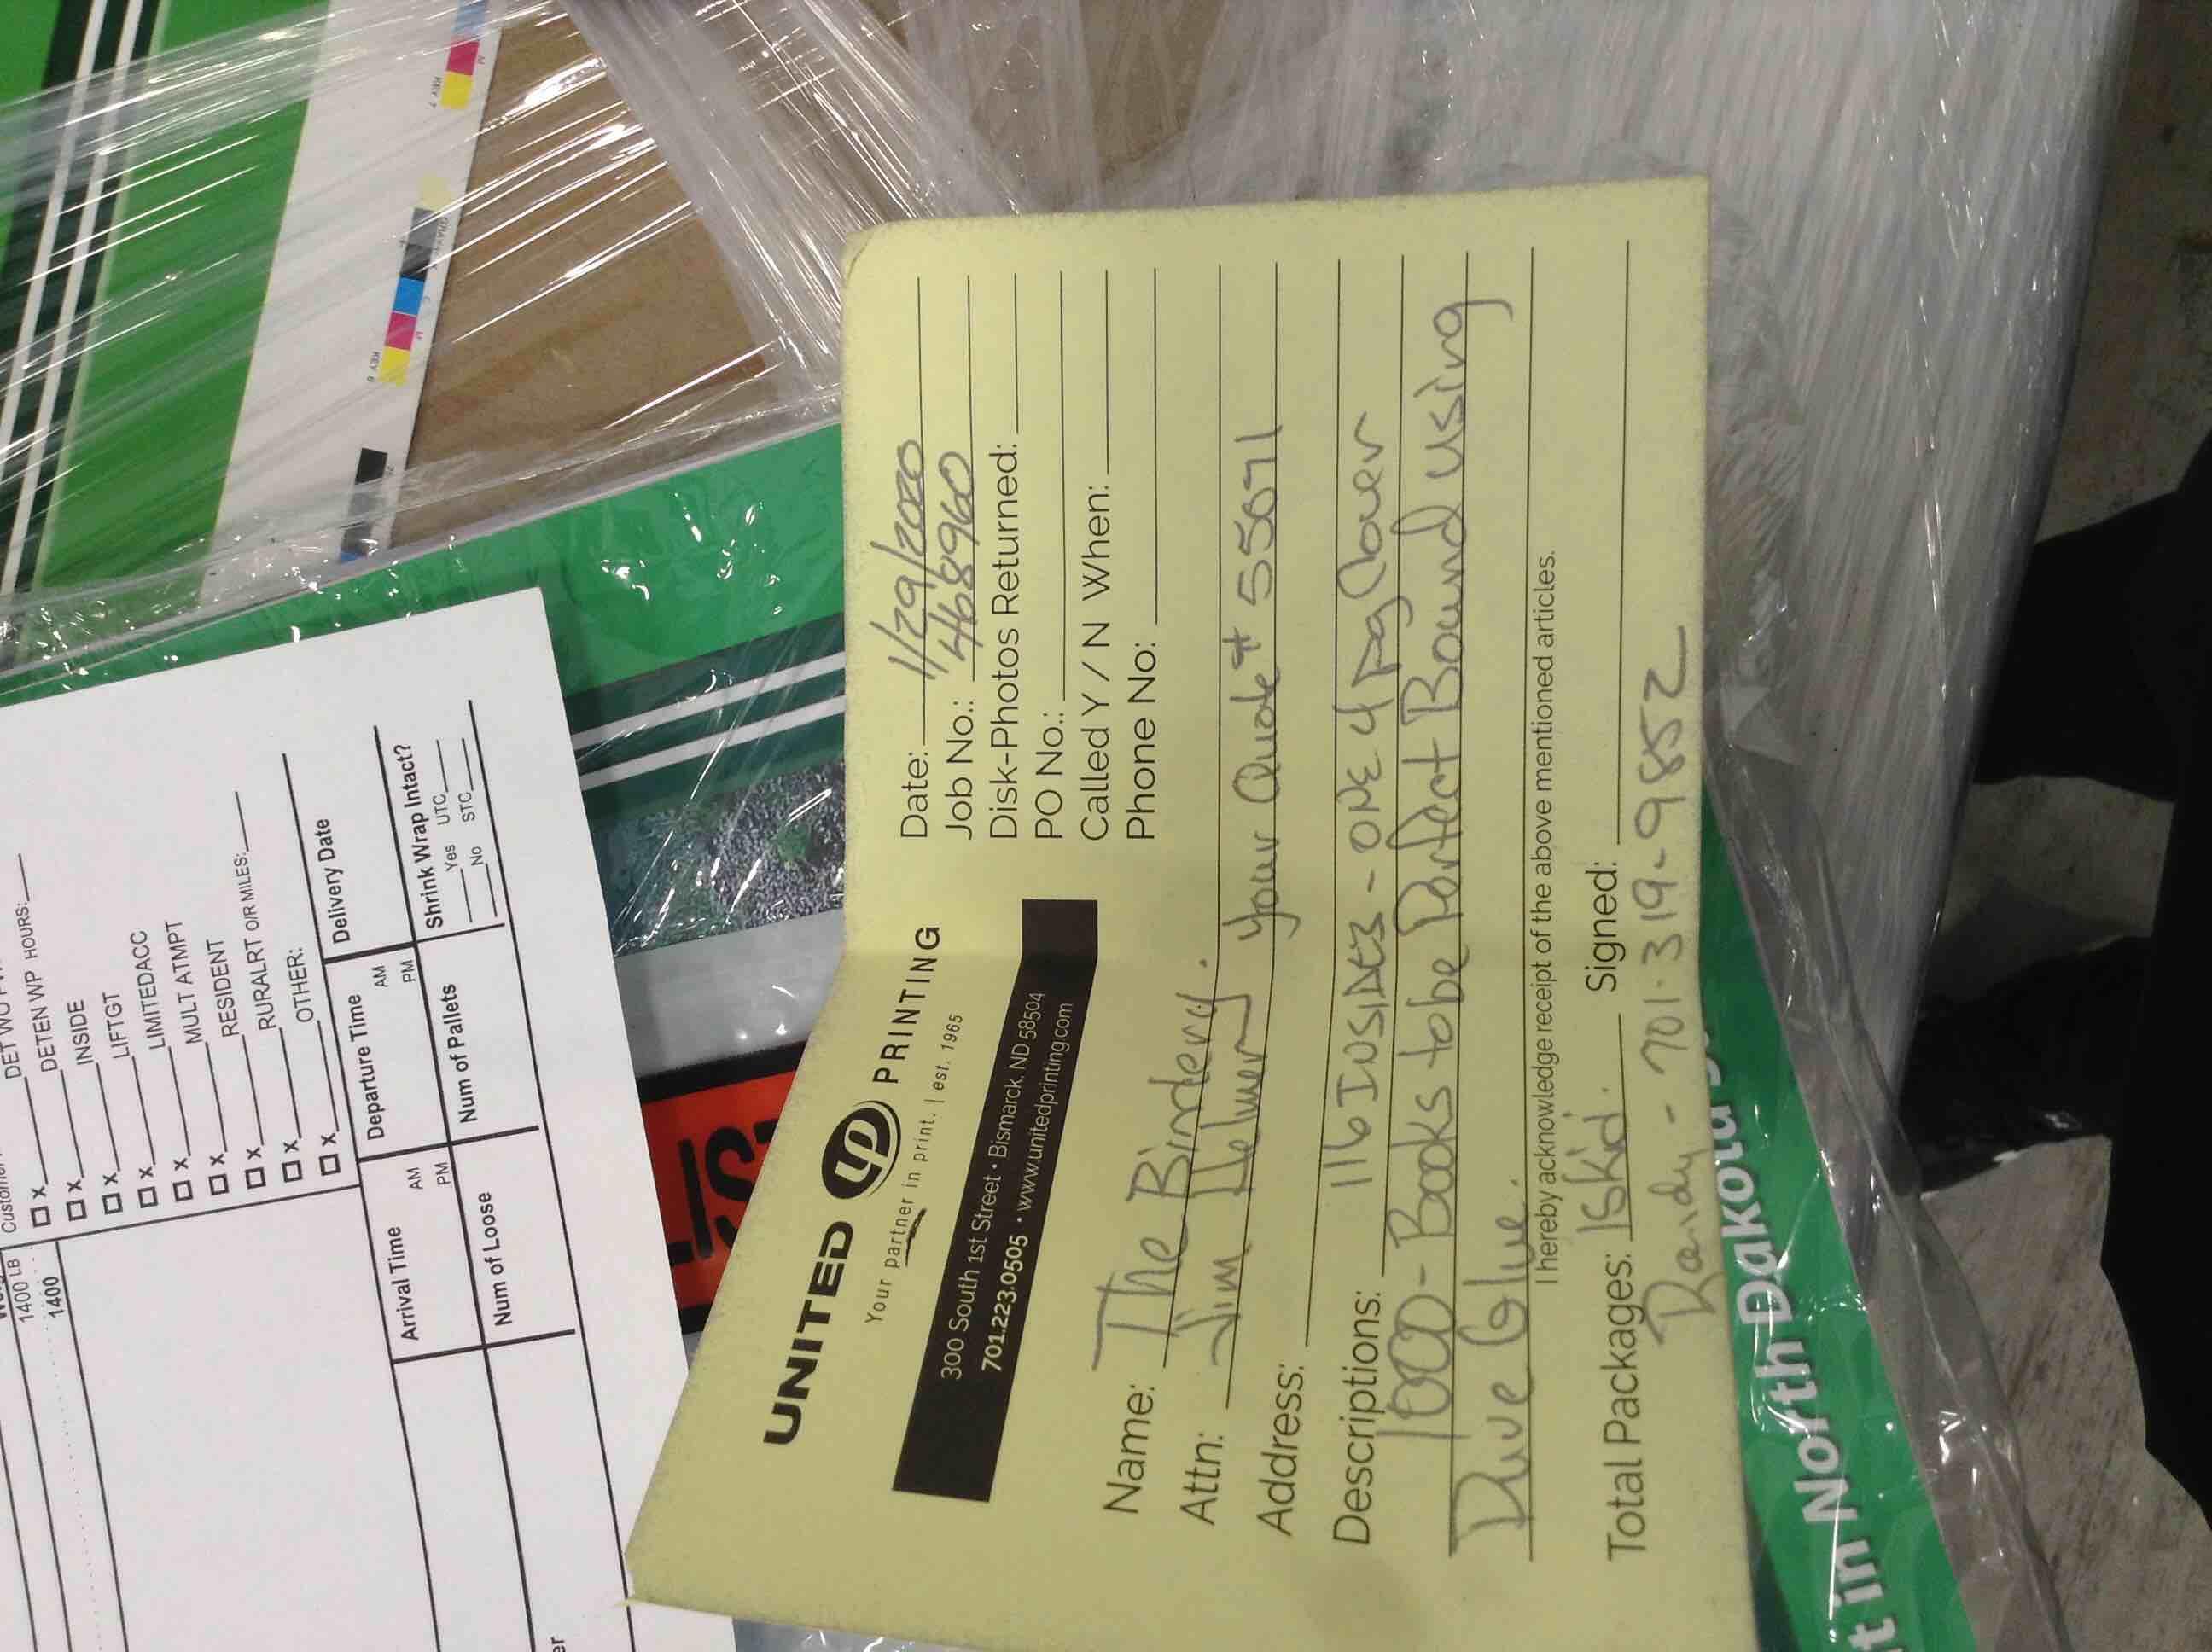 UNITED UP PRINTING
Your partner in print. | est. 1965
300 South 1st Street • Bismarck, ND 58504
701.223.0505 • www.unitedprinting.com
Date: 1/29/2020
Job No.: 468960
Disk-Photos Returned:
PO No.:
Called Y / N When:
Phone No:
Name: The Bindery.
Attn: Jim Helmer Your Quote # 55691
Address:
Descriptions: 116 INSIDES - ONE 4 pg Cover
1000 - Books to be Perfect Bound using
Glue.
I hereby acknowledge receipt of the above mentioned articles.
Total Packages: 1 Skid. Signed:
Randy - 701.319-9852
t in North Dakota
LIS
DETEN WP HOURS:
X INSIDE
X LIFTGT
X LIMITEDACC
X MULT ATMPT
X RESIDENT
X RURALRT O/R MILES:
X OTHER:
1400 LB
1400
Arrival Time AM PM
Departure Time AM PM
Delivery Date
Num of Loose
Num of Pallets
Shrink Wrap Intact?
Yes UTC
No STC
KEY 7
KEY 6